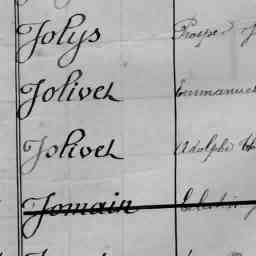 Jolys Prosper
Jolivet Emmanuel
Jolivet Adolphe
Jomain